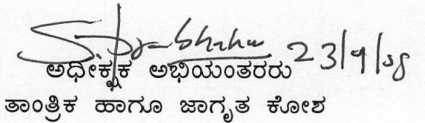 23/9/08
ಅಧೀಕ್ಷಕ ಅಭಿಯಂತರರು
ತಾಂತ್ರಿಕ ಹಾಗೂ ಜಾಗೃತ ಕೋಶ